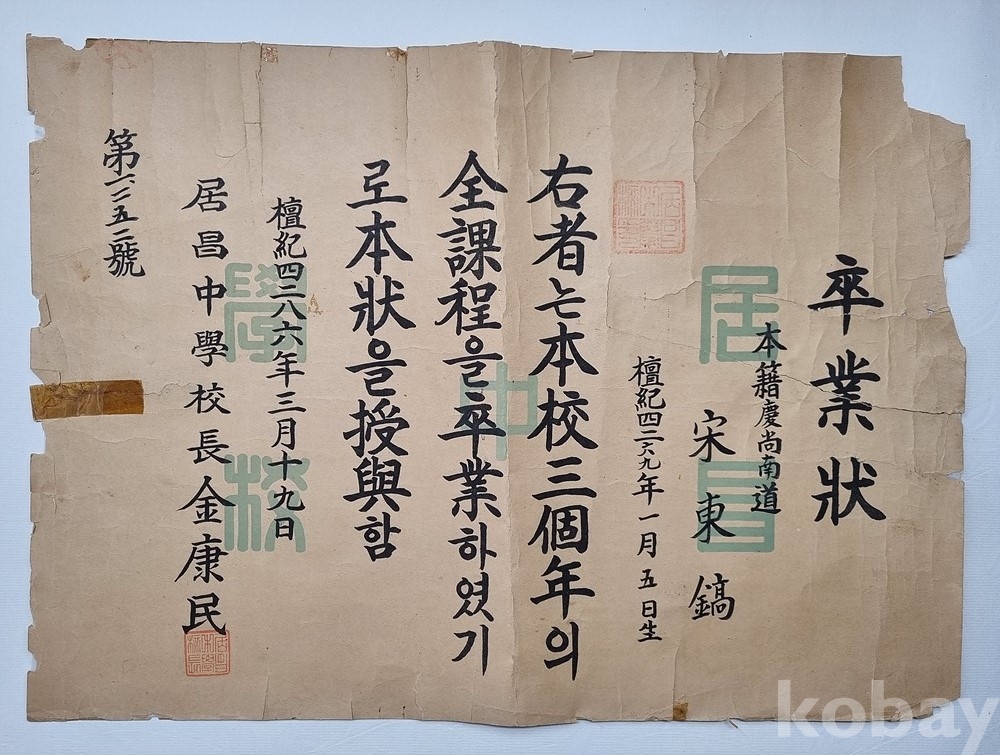 卒業狀
本籍慶尙南道
宋東鎬
檀紀四二六九年一月五日生
右者는本校三個年의
全課程을卒業하였기
로本狀을授與함
檀紀四二八六年三月十九日
居昌中學校長金康民
第一二五二號
居昌
中
學校
kobay